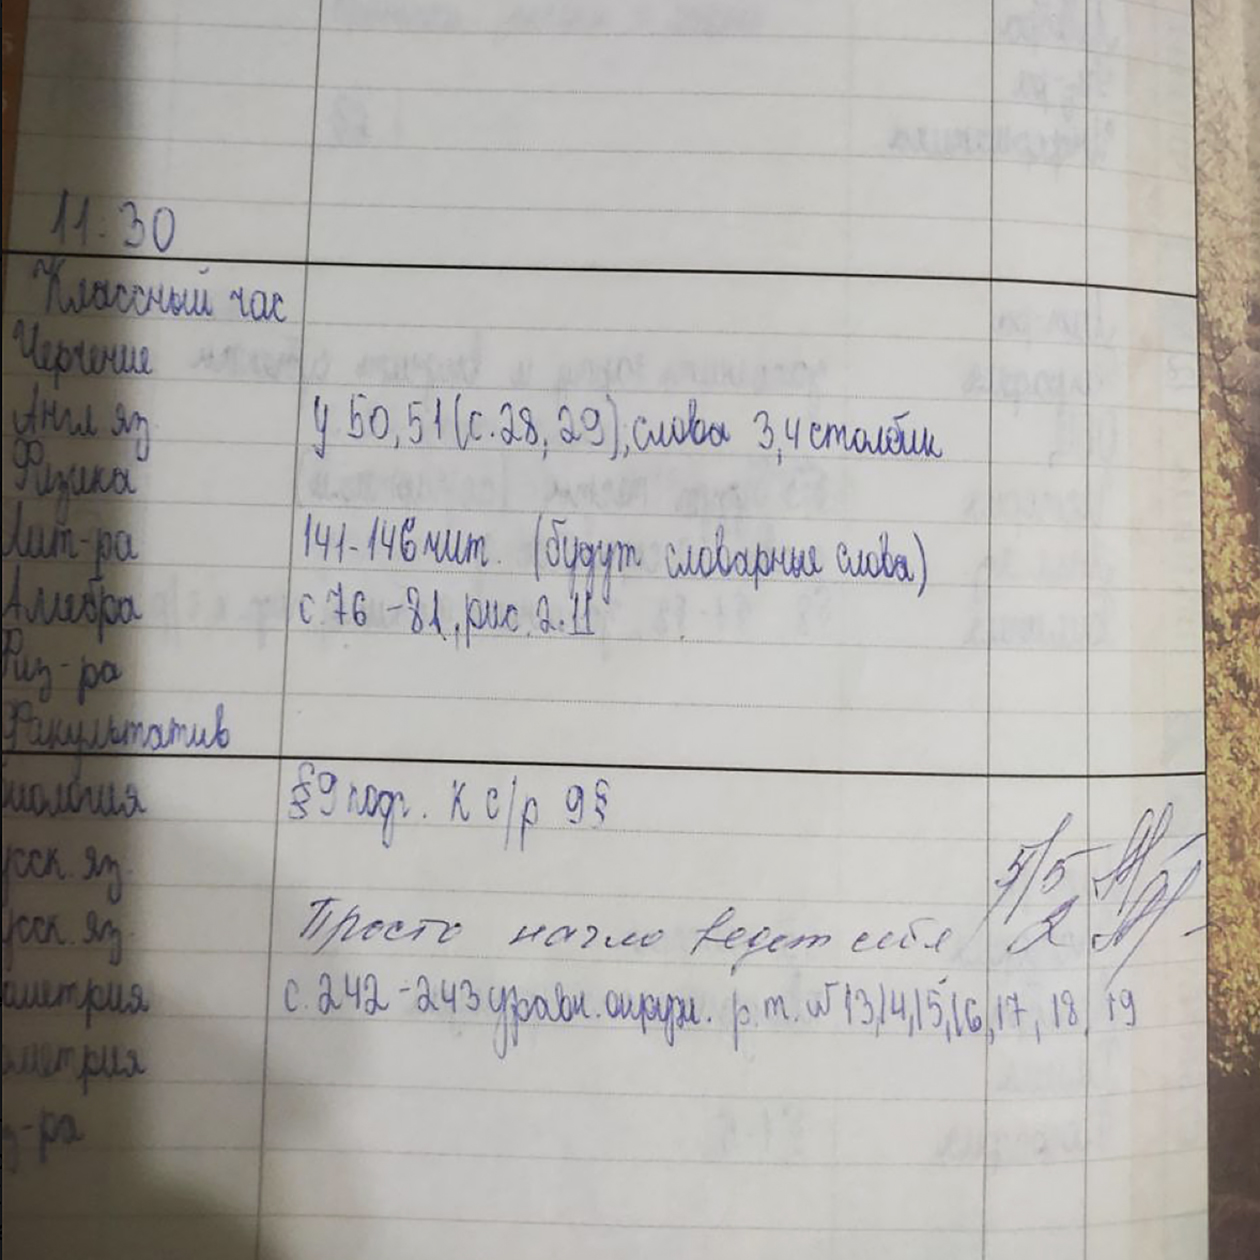 11:30
Классный час
Черчение
Англ. яз. у 50, 51 (с. 28, 29), слова 3, 4 столбик
Физика
Лит-ра 141-146 чит. (будут словарные слова)
Алгебра с. 76-81, рис. 2.11
Физ-ра
Факультатив
иология §9 подг. к с/р 9§
усск. яз. 5/5
усск. яз. Просто нагло ведет себя 2
ометрия с. 242-243 уравн. окруж. р.т. № 13,14,15,16,17,18,19
ометрия
з-ра